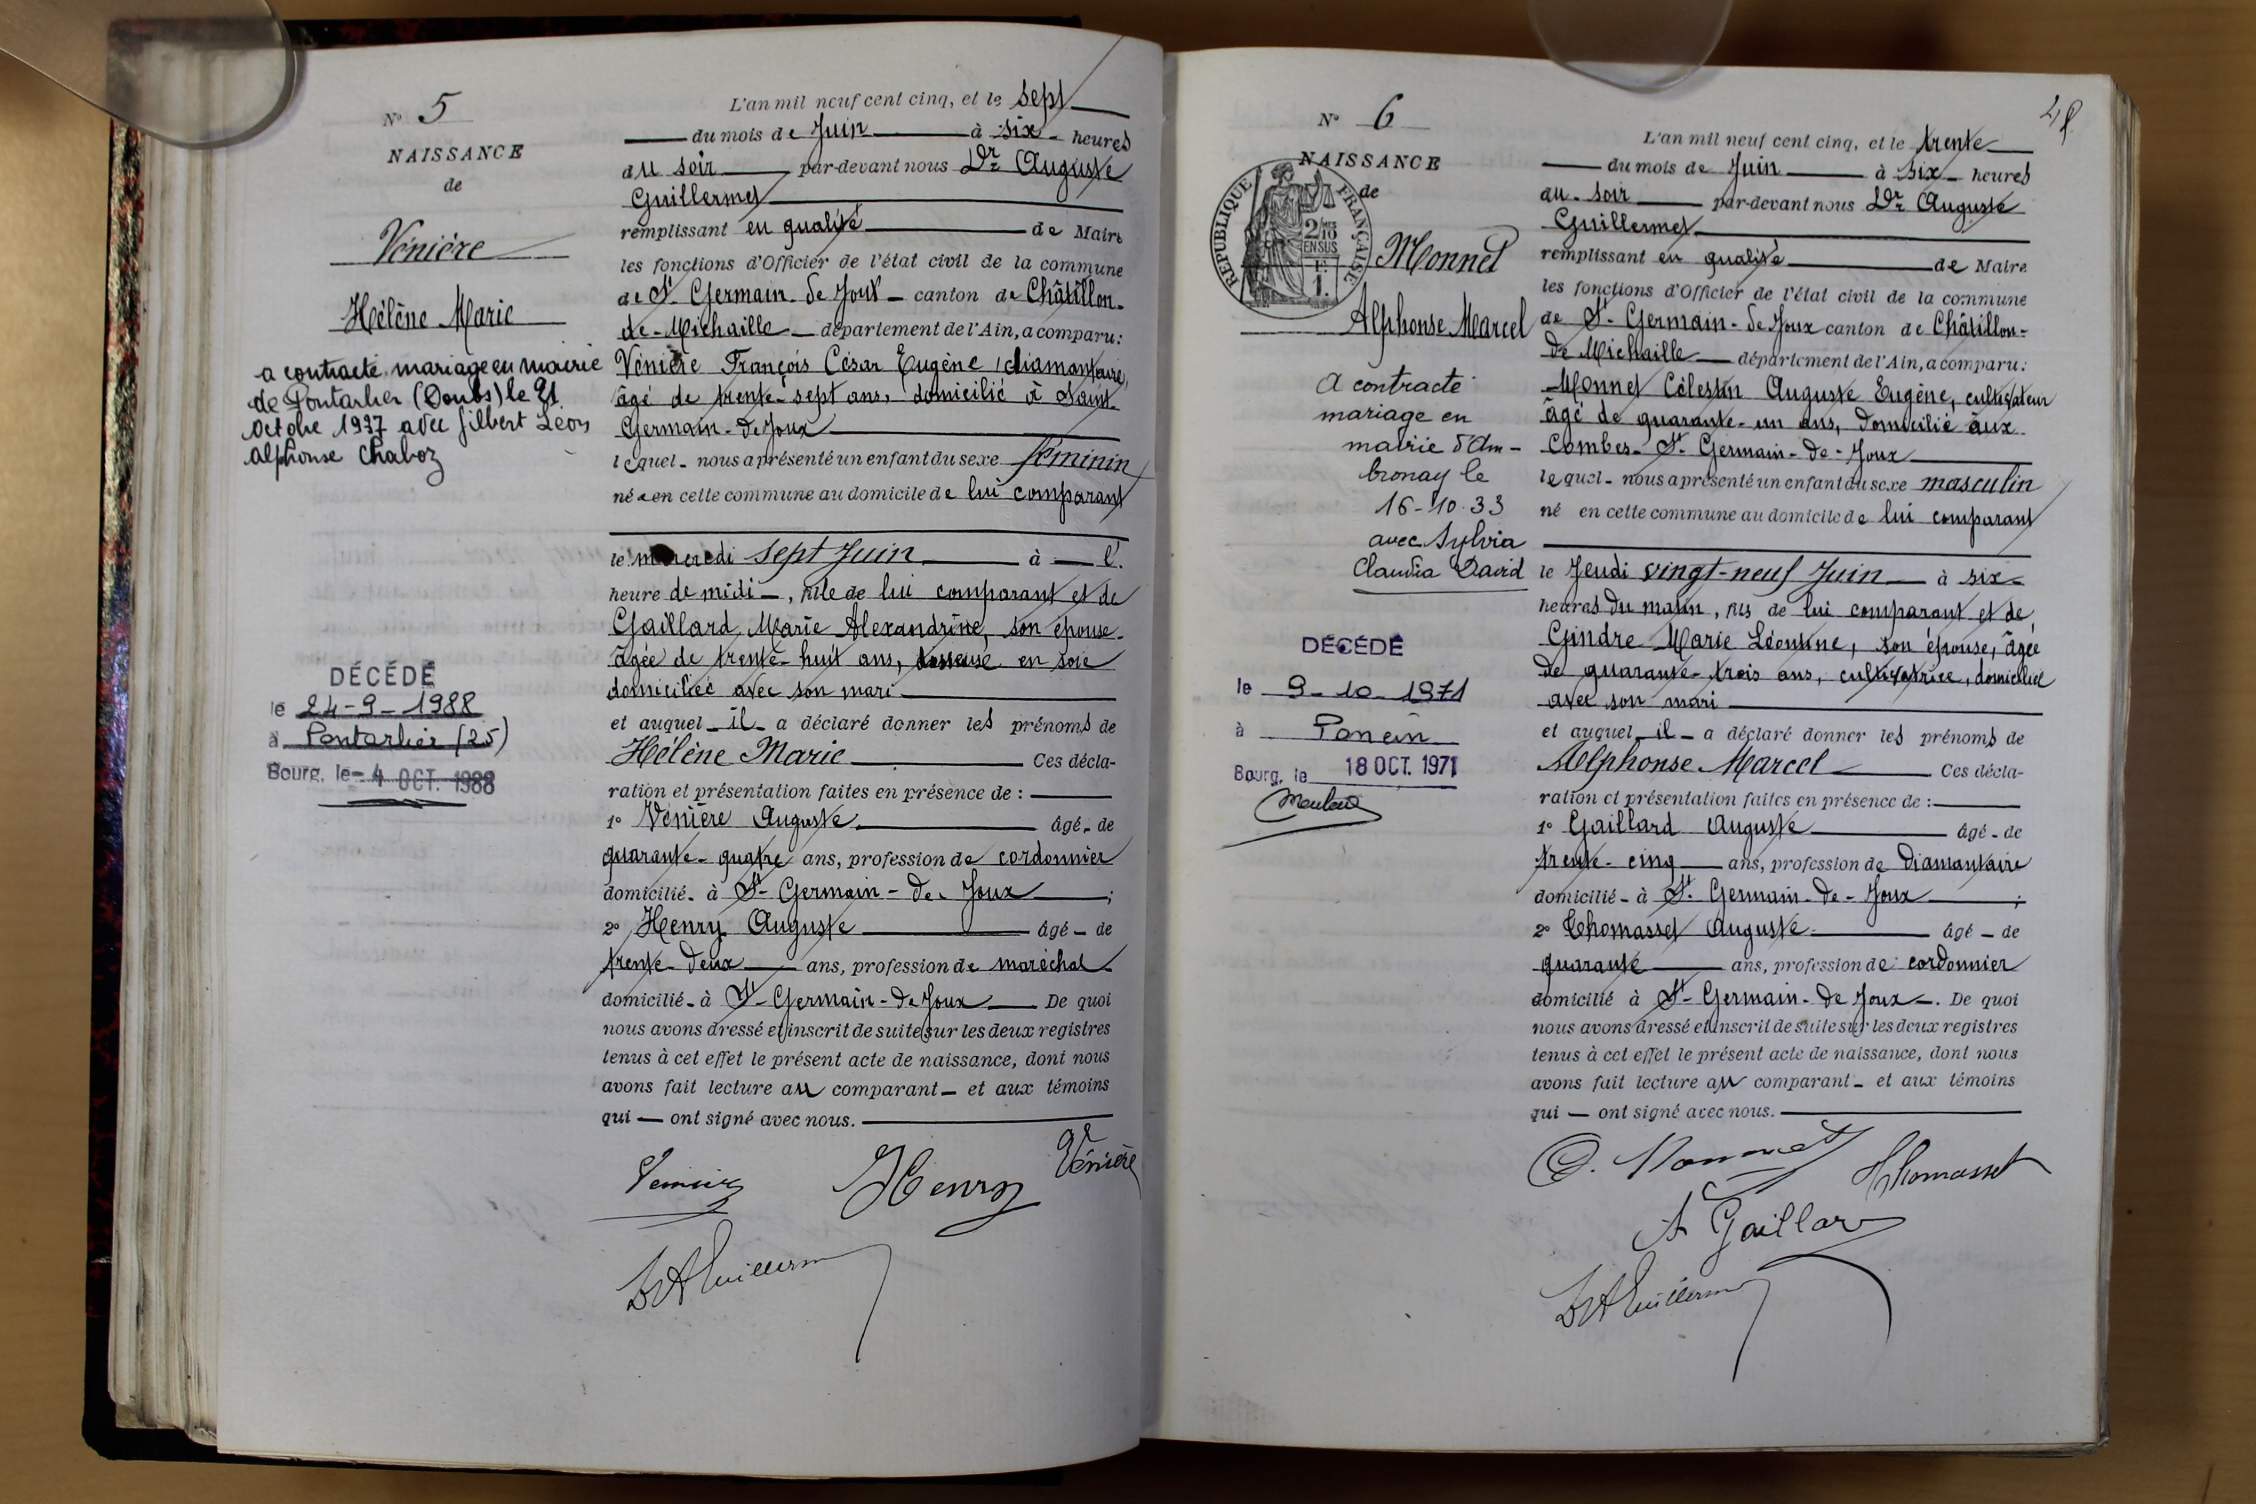 N° 5
NAISSANCE
de
Vénière
Hélène Marie
a contracté mariage en mairie
de Pontarlier (Doubs) le 21
octobre 1937 avec Gilbert Léon
Alphonse Chaboz
DÉCÉDÉ
le 24-9-1988
à Pontarlier (25)
Bourg, le - 4 OCT. 1988
L'an mil neuf cent cinq, et le sept
du mois de Juin à six heures
du soir par-devant nous Dr Auguste
Guillermet
remplissant en qualité de Maire
les fonctions d'Officier de l'état civil de la commune
de St Germain-de Joux canton de Châtillon-
de-Michaille département de l'Ain, a comparu:
Vénière François César Eugène, diamantaire,
âgé de trente-sept ans, domicilié à Saint-
Germain-de Joux
lequel nous a présenté un enfant du sexe féminin
née en cette commune au domicile de lui comparant
le mercredi sept Juin à l'
heure de midi, fille de lui comparant et de
Gaillard Marie Alexandrine, son épouse
âgée de trente-huit ans, en soie
domiciliée avec son mari
et auquel il a déclaré donner les prénoms de
Hélène Marie Ces décla-
ration et présentation faites en présence de :
1° Vénière Auguste âgé de
quarante-quatre ans, profession de cordonnier
domicilié à St-Germain-de-Joux ;
2° Henry Auguste âgé de
trente-deux ans, profession de maréchal
domicilié à St-Germain-de Joux De quoi
nous avons dressé et inscrit de suite sur les deux registres
tenus à cet effet le présent acte de naissance, dont nous
avons fait lecture au comparant et aux témoins
qui ont signé avec nous.
Henry Vénière
N° 6
48
NAISSANCE
de
RÉPUBLIQUE FRANÇAISE
2/10 EN SUS
Monnet
Alphonse Marcel
A contracté
mariage en
mairie d'Am-
bronay le
16-10-33
avec Sylvia
Claudia David
DÉCÉDÉ
le 9-10-1971
à Poncin
Bourg, le 18 OCT. 1971
L'an mil neuf cent cinq, et le trente
du mois de Juin à six heures
du soir par-devant nous Dr Auguste
Guillermet
remplissant en qualité de Maire
les fonctions d'Officier de l'état civil de la commune
de St-Germain-de Joux canton de Châtillon-
de Michaille département de l'Ain, a comparu:
Monnet Célestin Auguste Eugène, cultivateur
âgé de quarante-un ans, domicilié aux
Combes-St-Germain-de-Joux
lequel nous a présenté un enfant du sexe masculin
né en cette commune au domicile de lui comparant
le Jeudi vingt-neuf Juin à six
heures du matin, fils de lui comparant et de
Gindre Marie Léontine, son épouse, âgée
de quarante-trois ans, cultivatrice, domiciliée
avec son mari
et auquel il a déclaré donner les prénoms de
Alphonse Marcel Ces décla-
ration et présentation faites en présence de :
1° Gaillard Auguste âgé de
trente-cinq ans, profession de Diamantaire
domicilié à St-Germain-de-Joux ;
2° Thomasset Auguste âgé de
quarante ans, profession de cordonnier
domicilié à St-Germain-de Joux. De quoi
nous avons dressé et inscrit de suite sur les deux registres
tenus à cet effet le présent acte de naissance, dont nous
avons fait lecture au comparant et aux témoins
qui ont signé avec nous.
Monnet Thomasset
A Gaillard